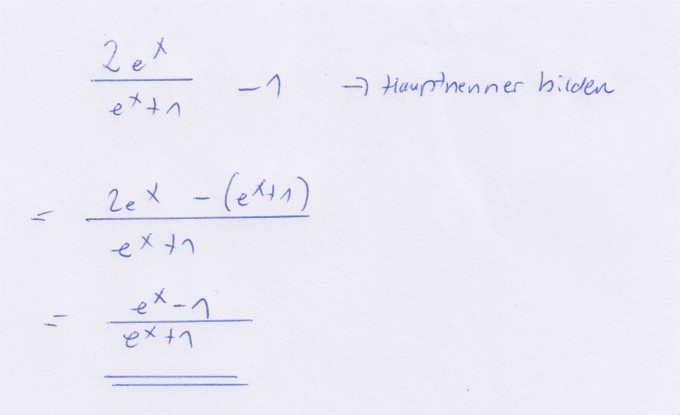 2eˣ / (eˣ+1) − 1 → Hauptnenner bilden
= (2eˣ − (eˣ+1)) / (eˣ+1)
= (eˣ−1) / (eˣ+1)